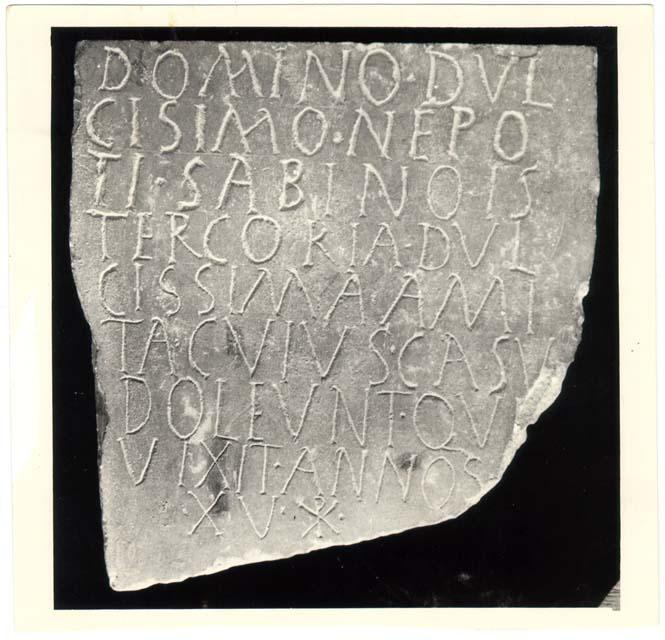 DOMINO·DVL
CISIMO·NEPO
TI·SABINO·IS
TERCORIA·DVL
CISSIMA AMI
TACVIVSCASV
DOLEVNT·QV
VIXIT·ANNOS
XV·☧·